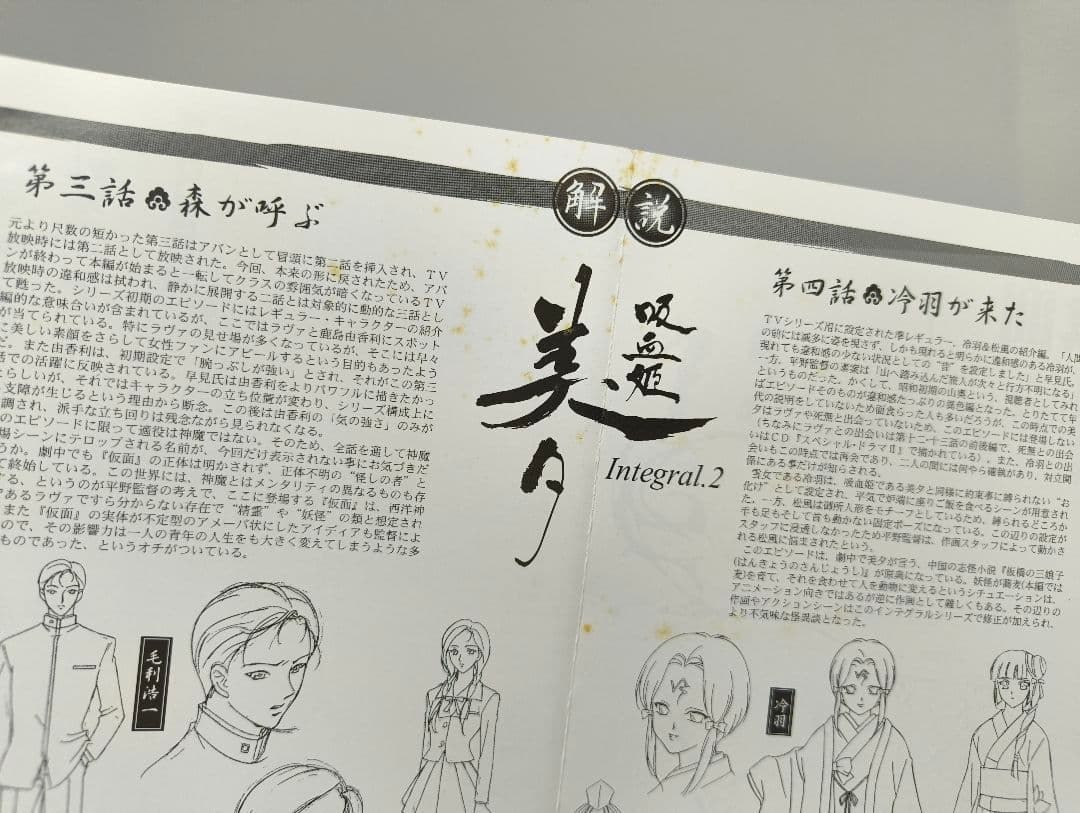 解説
吸血姫
美夕
Integral.2
第三話 森が呼ぶ
元より尺数の短かった第三話はアバンとして冒頭に第二話を挿入され、TV
放映時には第二話として放映された。今回、本来の形に戻されたため、アバ
ンが終わって本編が始まると一転してクラスの雰囲気が暗くなっているTV
放映時の違和感は拭われ、静かに展開する二話とは対象的に動的な三話とし
て甦った。シリーズ初期のエピソードにはレギュラー・キャラクターの紹介
編的な意味合いが含まれているが、ここではラヴァと鹿島由香利にスポット
が当てられている。特にラヴァの見せ場が多くなっているが、そこには早々
に美しい素顔をさらして女性ファンにアピールするという目的もあったよう
だ。また由香利は、初期設定で「腕っぷしが強い」とされ、それがこの第三
話での活躍に反映されている。早見氏は由香利をよりパワフルに描きたかっ
たらしいが、それではキャラクターの立ち位置が変わり、シリーズ構成上に
支障が生じるという理由から断念。この後は由香利の「気の強さ」のみが
調され、派手な立ち回りは残念ながら見られなくなる。
のエピソードに限って適役は神魔ではない。そのため、全話を通して神魔
場シーンにテロップされる名前が、今回だけ表示されない事にお気づきだ
うか。劇中でも『仮面』の正体は明かされず、正体不明の“怪しの者”と
て終始している。この世界には、神魔とはメンタリティの異なるものも存
する、というのが平野監督の考えで、ここに登場する『仮面』は、西洋神
であるラヴァですら分からない存在で“精霊”や“妖怪”の類と想定され
また『仮面』の実体が不定型のアメーバ状にしたアイディアも監督によ
ので、その影響力は一人の青年の人生をも大きく変えてしまうような多
ものであった、というオチがついている。
毛利浩一
第四話 冷羽が来た
TVシリーズ用に設定された準レギュラー、冷羽&松風の紹介編。「人間
の前には滅多に姿を現さず、しかも現れると明らかに違和感のある冷羽が、
現れても違和感の少ない状況としての“昔”を設定しました」と早見氏。
一方、平野監督の素案は「山へ踏み込んだ旅人が次々と行方不明になる」
というものだった。かくして、昭和初期の山奥という、視聴者としてみれ
ばエピソードそのものが違和感たっぷりの異色編となった。とりたてて年
代の説明をしていないため面食らった人も多いだろうが、この時点での美
夕はラヴァや死無と出会っていないため、このエピソードには登場しない
(ちなみにラヴァとの出会いは第十二・十三話の前後編で、死無との出会
いはCD『スペシャル・ドラマⅡ』で描かれている)。また、冷羽との出
会いもこの時点では再会であり、二人の間には何やら確執があり、対立関
係にある事だけが知らされる。
雪女である冷羽は、吸血姫である美夕と同様に約束事に縛られない“お
化け”として設定され、平気で炉端に座りご飯を食べるシーンが用意され
た。一方、松風は御所人形をモチーフとしているため、縛られるどころか
手も足もそして首も動かない固定ポーズになっている。この辺りの設定が
スタッフに浸透しなかったため平野監督は、作画スタッフによって動かさ
れる松風に悩まされたという。
このエピソードは、劇中で美夕が言う、中国の志怪小説『板橋の三娘子
(はんきょうのさんじょうし)』が原案になっている。妖怪が蕎麦(本編では
麦)を育て、それを食わせて人を動物に変えるというシチュエーションは、
アニメーション向きではあるが逆に作画として難しくもある。その辺りの
作画やアクションシーンはこのインテグラルシリーズで修正が加えられ、
より不気味な怪異談となった。
冷羽